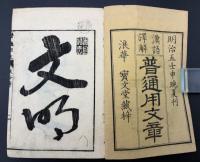 明治五壬申晩夏刊
漢語
譯解
普通用文章
浪華 寳文堂藏梓
文明